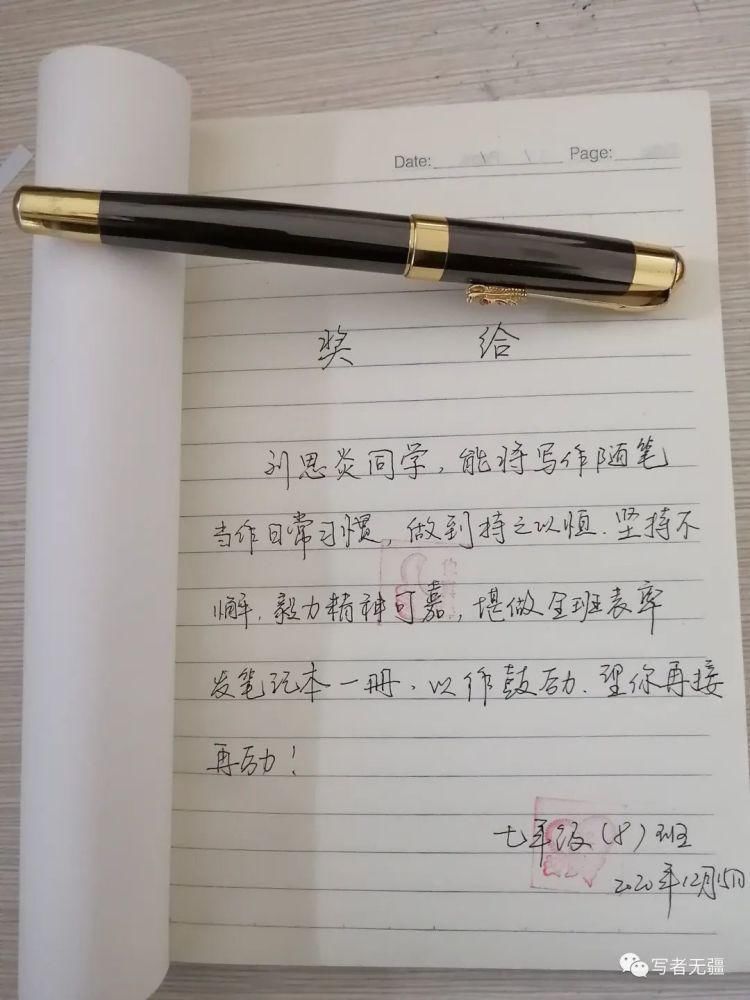 Date: Page:
奖 给
刘思炎同学，能将写作随笔
当作日常习惯，做到持之以恒.坚持不
懈，毅力精神可嘉，堪做全班表率
发笔记本一册、以作鼓励.望你再接
再励！
七年级（8）班
2020年12月15日
写者无疆